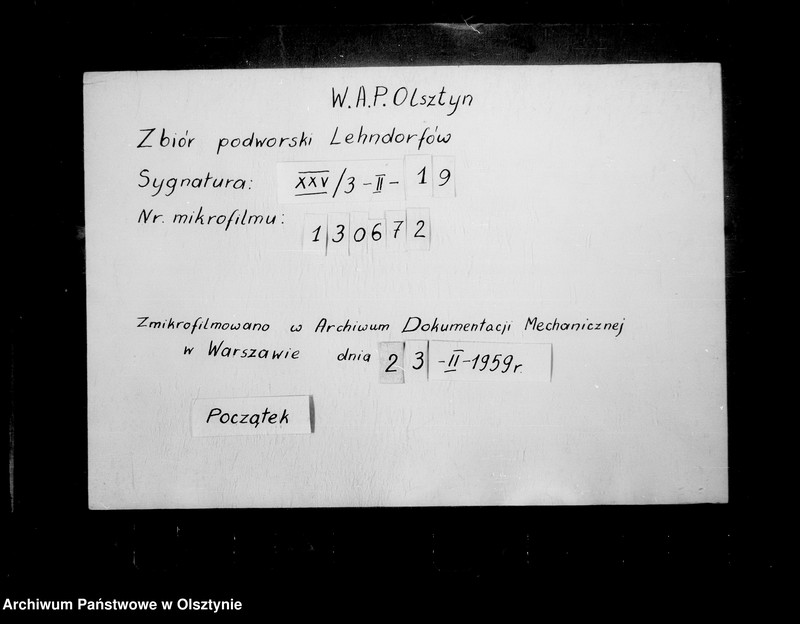 W.A.P. Olsztyn
Zbiór podworski Lehndorfów
Sygnatura: XXV/3-II-19
Nr. mikrofilmu: 130672
Zmikrofilmowano w Archiwum Dokumentacji Mechanicznej
w Warszawie dnia 23-II-1959r.
Początek
Archiwum Państwowe w Olsztynie